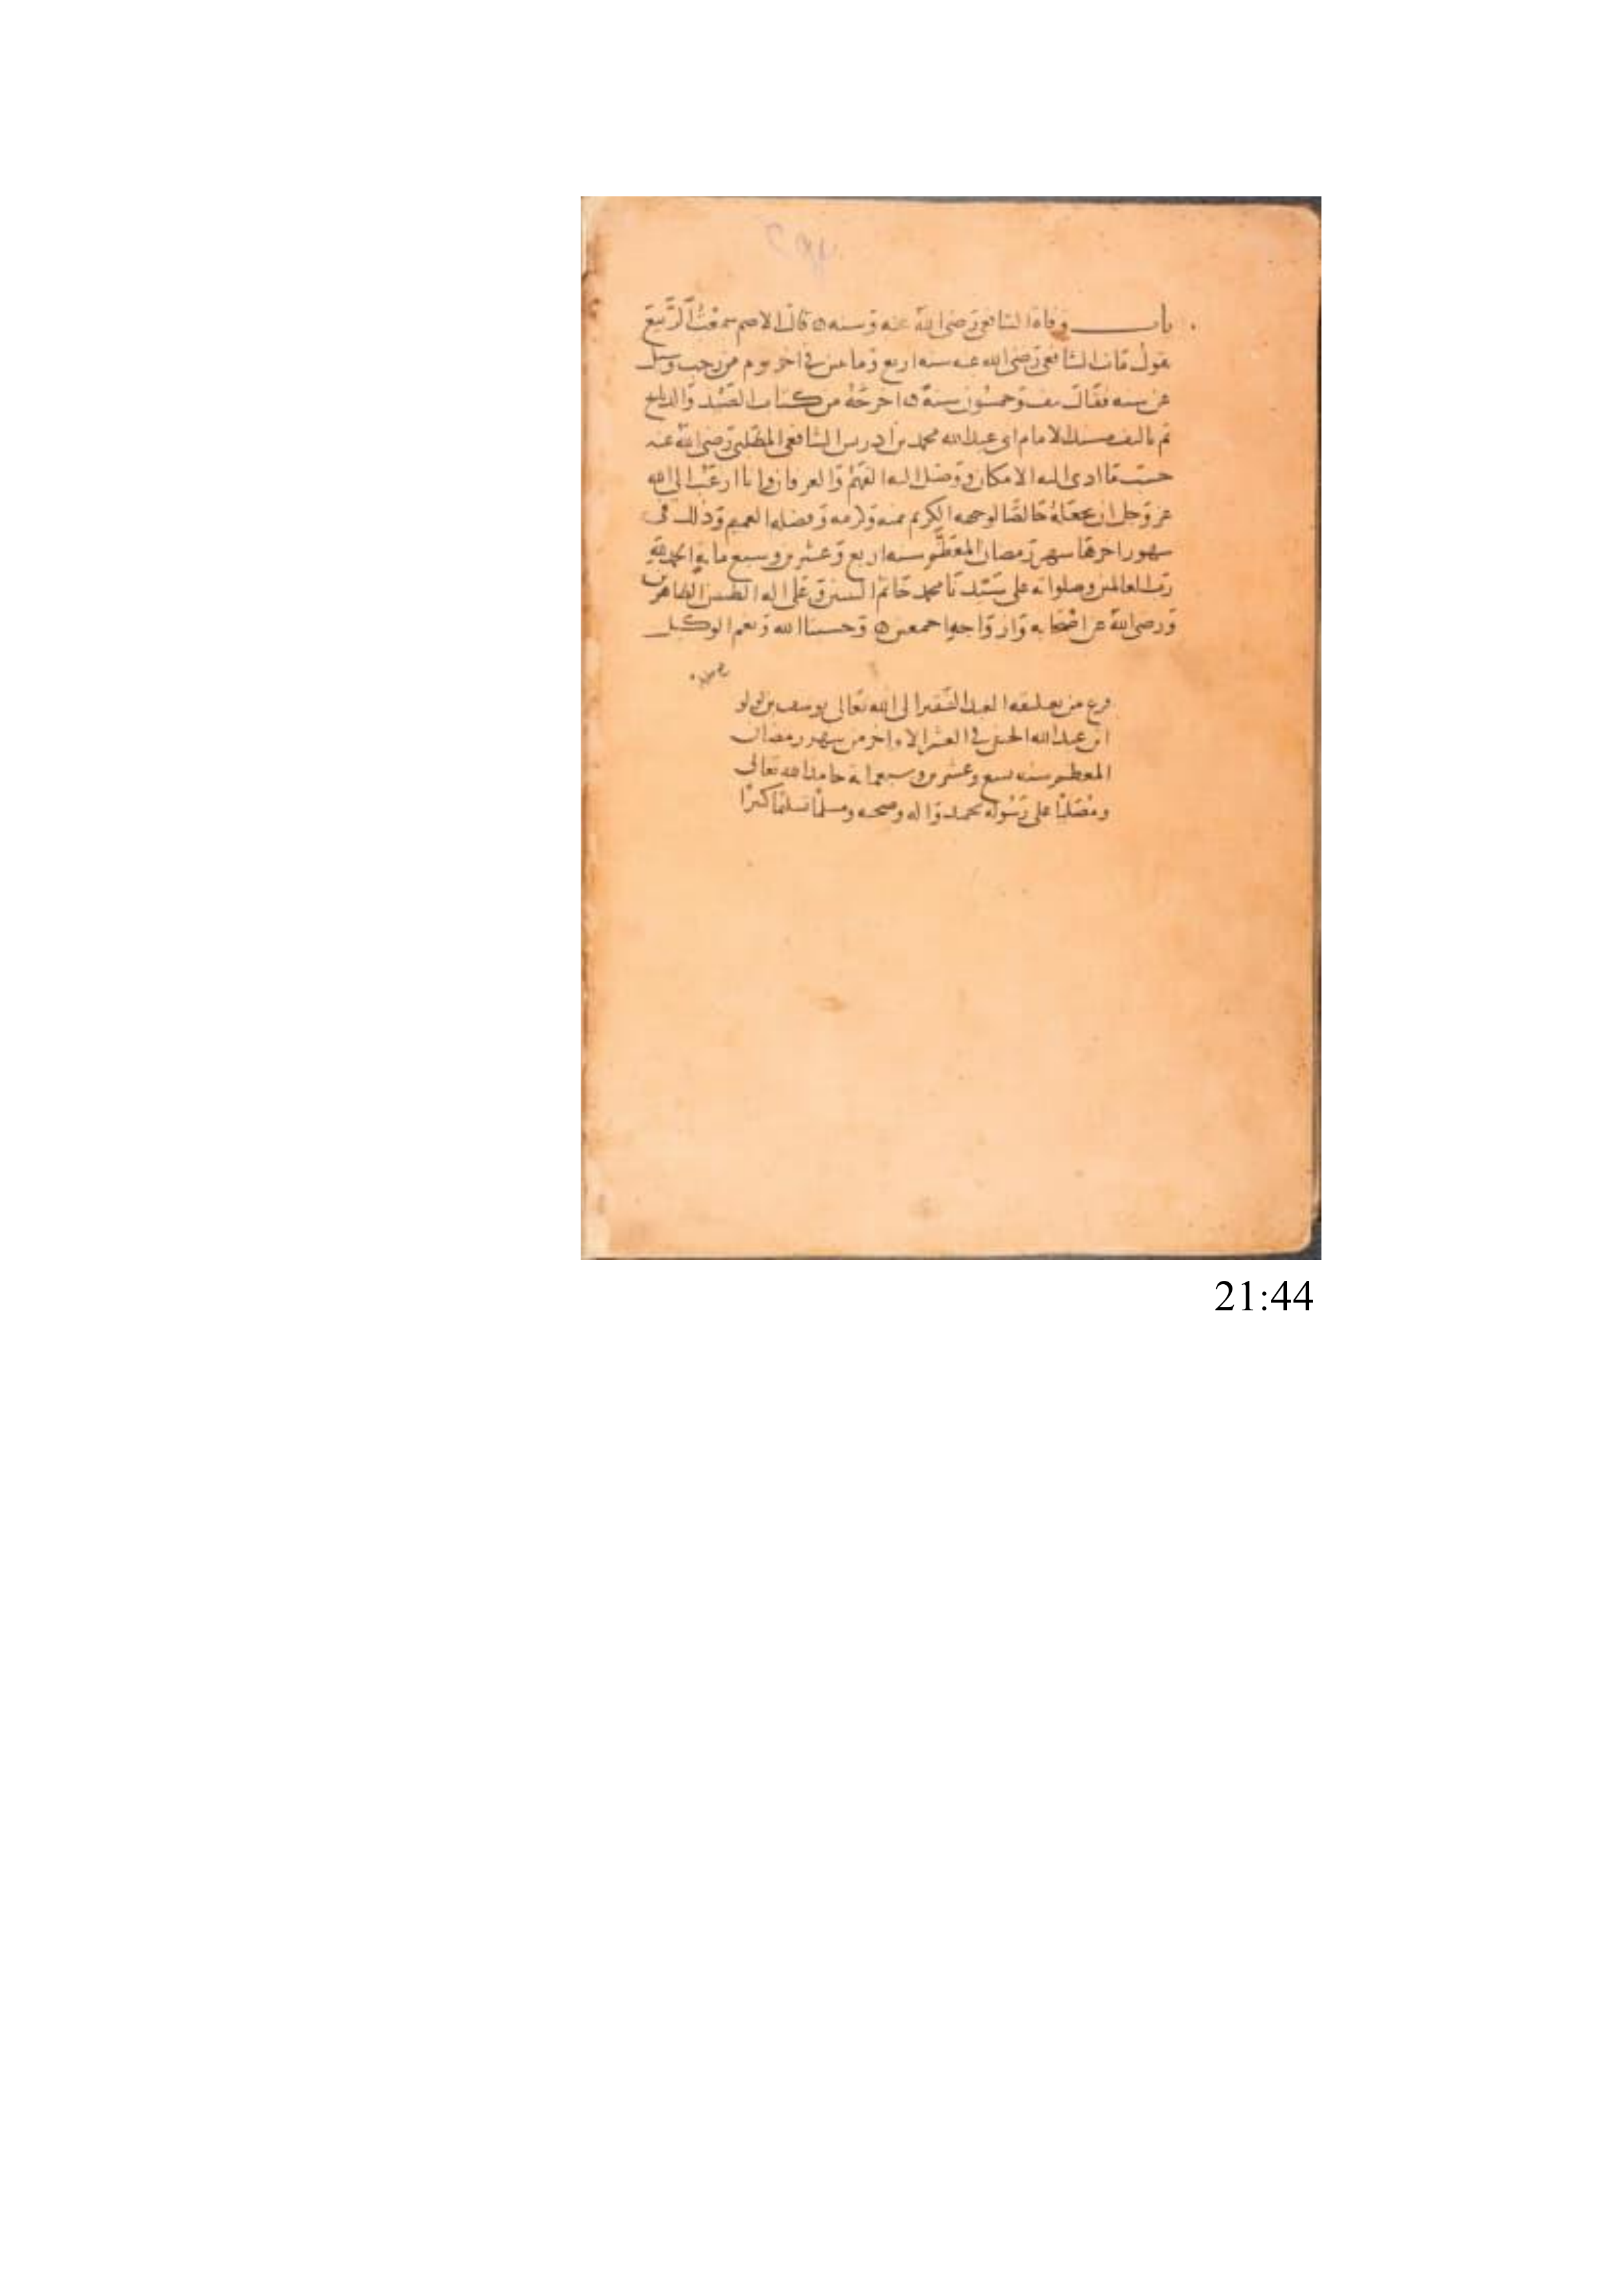 باب وفاة الشافعي رضي الله عنه وسنه ه قال الاصم سمعت الربيع
يقول مات الشافعي رضي الله عنه سنه اربع ومايتين في اخر يوم من رجب وسيل
عن سنه فقال نيف وخمسون سنة ه اخرجه من كتاب الصيد والذبايح
تم تاليف مسند الامام ابي عبد الله محمد بن ادريس الشافعي المطلبي رضي الله عنه
حسب ما ادى اليه الامكان ووصل اليه الفهم والعرفان وانا ارغب الى الله
عز وجل ان يجعله خالصا لوجهه الكريم بمنه وكرمه وفضله العميم وذلك في
شهور اخرها شهر رمضان المعظم سنه اربع وعشرين وسبع مايه الحمد لله
رب العالمين وصلواته على سيدنا محمد خاتم النبيين وعلى اله الطيبين الطاهرين
ورضي الله عن اصحابه وازواجه اجمعين ه وحسبنا الله ونعم الوكيل
فرغ من تعليقه العبد الفقير الى الله تعالى يوسف بن لولو
ابن عبد الله في العشر الاواخر من شهر رمضان
المعظم سنه وعشرين وسبعماية حامدا لله تعالى
ومصليا على رسوله محمد واله وصحبه ومسلما تسليما كثيرا
21:44